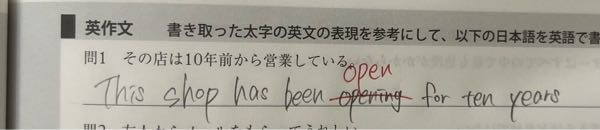 英作文 書き取った太字の英文の表現を参考にして、以下の日本語を英語で書
問1 その店は10年前から営業している。
open
This shop has been opening for ten years